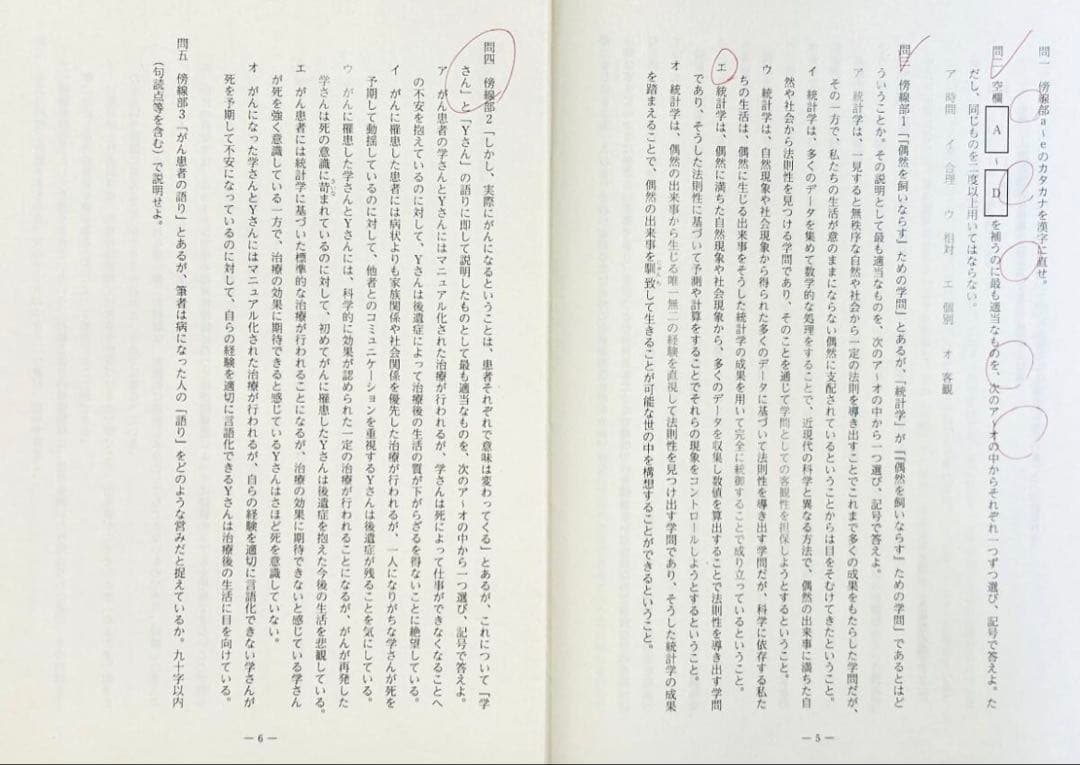 問一　傍線部a～eのカタカナを漢字に直せ。
問二　空欄 A ～ D を補うのに最も適当なものを、次のア～オの中からそれぞれ一つずつ選び、記号で答えよ。た
だし、同じものを二度以上用いてはならない。
ア　時間　イ　合理　ウ　相対　エ　個別　オ　客観
問三　傍線部1「「偶然を飼いならす」ための学問」とあるが、「統計学」が「「偶然を飼いならす」ための学問」であるとはど
ういうことか。その説明として最も適当なものを、次のア～オの中から一つ選び、記号で答えよ。
ア　統計学は、一見すると無秩序な自然や社会から一定の法則を導き出すことでこれまで多くの成果をもたらした学問だが、
その一方で、私たちの生活が意のままにならない偶然に支配されているということからは目をそむけてきたということ。
イ　統計学は、多くのデータを集めて数学的な処理をすることで、近現代の科学と異なる方法で、偶然の出来事に満ちた自
然や社会から法則性を見つける学問であり、そのことを通じて学問としての客観性を担保しようとするということ。
ウ　統計学は、自然現象や社会現象から得られた多くのデータに基づいて法則性を導き出す学問だが、科学に依存する私た
ちの生活は、偶然に生じる出来事をそうした統計学の成果を用いて完全に統御することで成り立っているということ。
エ　統計学は、偶然に満ちた自然現象や社会現象から、多くのデータを収集し数値を算出することで法則性を導き出す学問
であり、そうした法則性に基づいて予測や計算をすることでそれらの現象をコントロールしようとするということ。
オ　統計学は、偶然の出来事から生じる唯一無二の経験を直視して法則性を見つけ出す学問であり、そうした統計学の成果
を踏まえることで、偶然の出来事を馴致して生きることが可能な世の中を構想することができるということ。
じゅん
— 5 —
問四　傍線部2「しかし、実際にがんになるということは、患者それぞれで意味は変わってくる」とあるが、これについて「学
さん」と「Yさん」の語りに即して説明したものとして最も適当なものを、次のア～オの中から一つ選び、記号で答えよ。
ア　がん患者の学さんとYさんにはマニュアル化された治療が行われるが、学さんは死によって仕事ができなくなることへ
の不安を抱えているのに対して、Yさんは後遺症によって治療後の生活の質が下がらざるを得ないことに絶望している。
イ　がんに罹患した患者には病状よりも家族関係や社会関係を優先した治療が行われるが、一人になりがちな学さんが死を
予期して動揺しているのに対して、他者とのコミュニケーションを重視するYさんは後遺症が残ることを気にしている。
ウ　がんに罹患した学さんとYさんには、科学的に効果が認められた一定の治療が行われることになるが、がんが再発した
学さんは死の意識に苛まれているのに対して、初めてがんに罹患したYさんは後遺症を抱えた今後の生活を悲観している。
さいな
エ　がん患者には統計学に基づいた標準的な治療が行われることになるが、治療の効果に期待できないと感じている学さん
が死を強く意識している一方で、治療の効果に期待できると感じているYさんはさほど死を意識していない。
オ　がんになった学さんとYさんにはマニュアル化された治療が行われるが、自らの経験を適切に言語化できない学さんが
死を予期して不安になっているのに対して、自らの経験を適切に言語化できるYさんは治療後の生活に目を向けている。
問五　傍線部3「がん患者の語り」とあるが、筆者は病になった人の「語り」をどのような営みだと捉えているか。九十字以内
（句読点等を含む）で説明せよ。
— 6 —